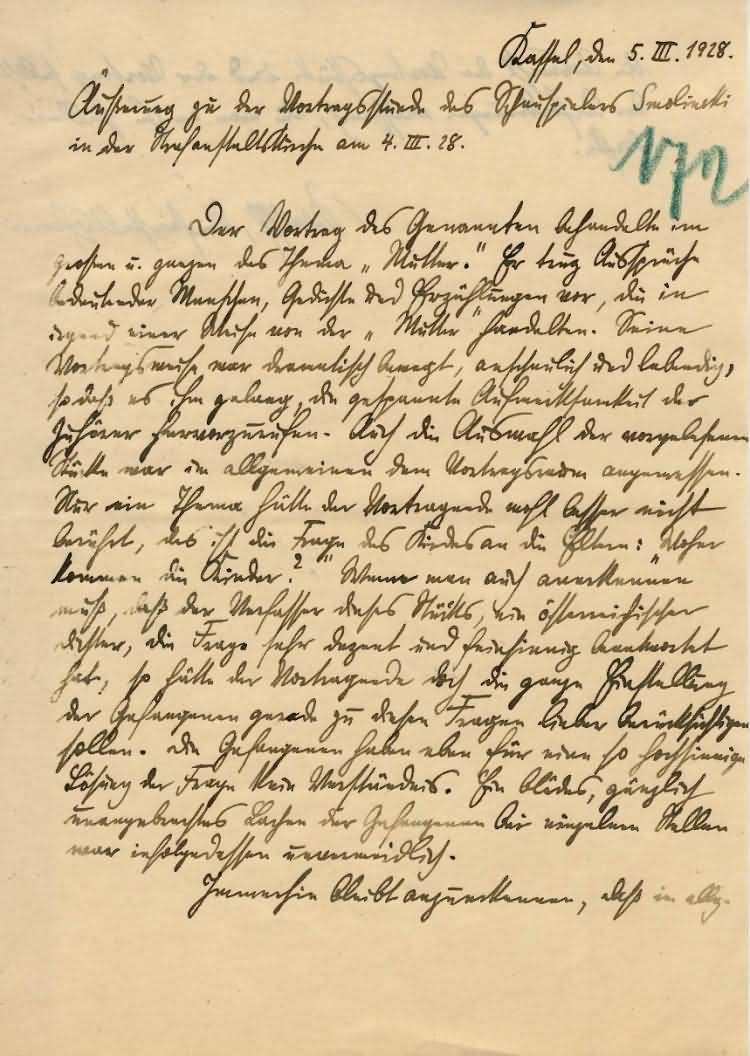 Kassel, den 5. III. 1928.
Äußerung zu der Vortragsstunde des Schauspielers Smolinski
in der Strafanstaltskirche am 4. III. 28.
172
Der Vortrag des Genannten behandelte im
großen u. ganzen das Thema „Mutter." Er trug Aussprüche
bedeutender Menschen, Gedichte und Erzählungen vor, die in
irgend einer Weise von der „Mutter" handelten. Seine
Vortragsweise war dramatisch bewegt, anschaulich und lebendig,
so daß es ihm gelang, die gespannte Aufmerksamkeit der
Zuhörer hervorzurufen. Auch die Auswahl der vorgelesenen
Stücke war im allgemeinen dem Vortragsraum angemessen.
Nur ein Thema hätte der Vortragende wohl besser nicht
berührt, das ist die Frage des Kindes an die Eltern: „Woher
kommen die Kinder?" Wenn man auch anerkennen
muß, daß der Verfasser dieses Stücks, ein österreichischer
Dichter, die Frage sehr dezent und feinsinnig beantwortet
hat, so hätte der Vortragende doch die ganze Einstellung
der Gefangenen gerade zu diesen Fragen lieber berücksichtigen
sollen. Die Gefangenen haben eben für eine so hochsinnige
Lösung der Frage kein Verständnis. Ein blödes, gänzlich
unangebrachtes Lachen der Gefangenen bei einzelnen Stellen
war infolgedessen unvermeidlich.
Immerhin bleibt anzuerkennen, daß im allg.